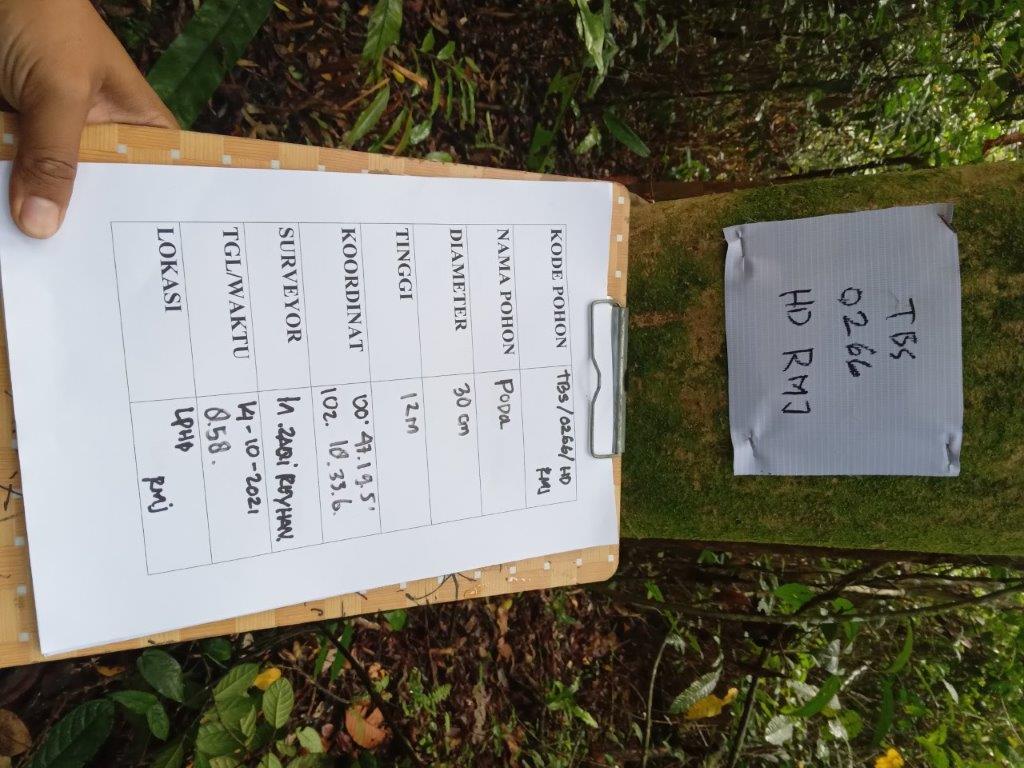 TBS
0266
HD RMJ
KODE POHON TBS/0266/HD
RMJ
NAMA POHON PODA
DIAMETER 30 cm
TINGGI 12M
KOORDINAT 00° 47.19.5'
102. 18.33.6.
SURVEYOR M. ZAQI REYHAN.
TGL/WAKTU 14-10-2021
8.58.
LOKASI LPHD
RMJ